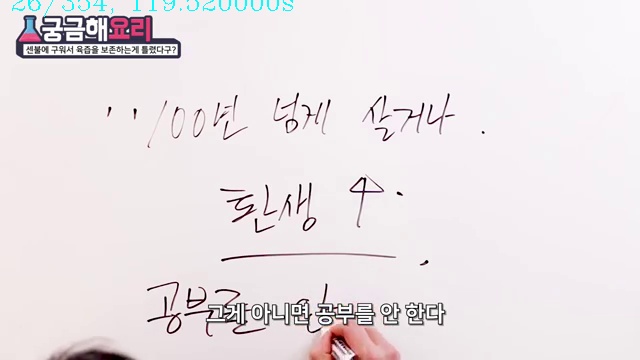 26/354, 119.520000s
궁금해요리
센불에 구워서 육즙을 보존하는게 틀렸다구?
''100년 넘게 살거나.
환생 ↑.
공부를 안
그게 아니면 공부를 안 한다